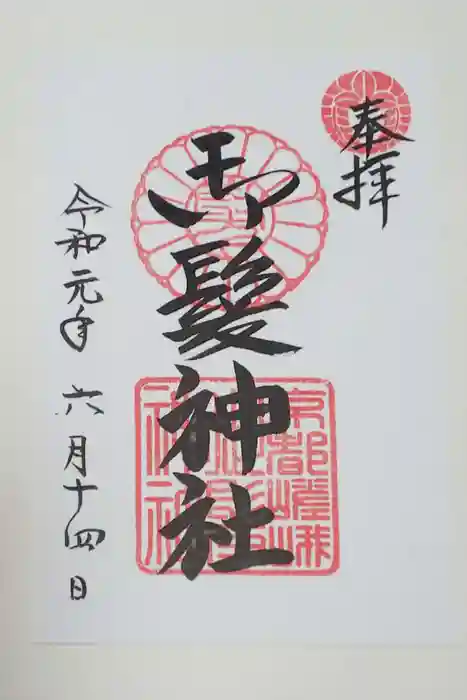 奉拝
御髪神社
京都嵯峨
令和元年 六月十四日